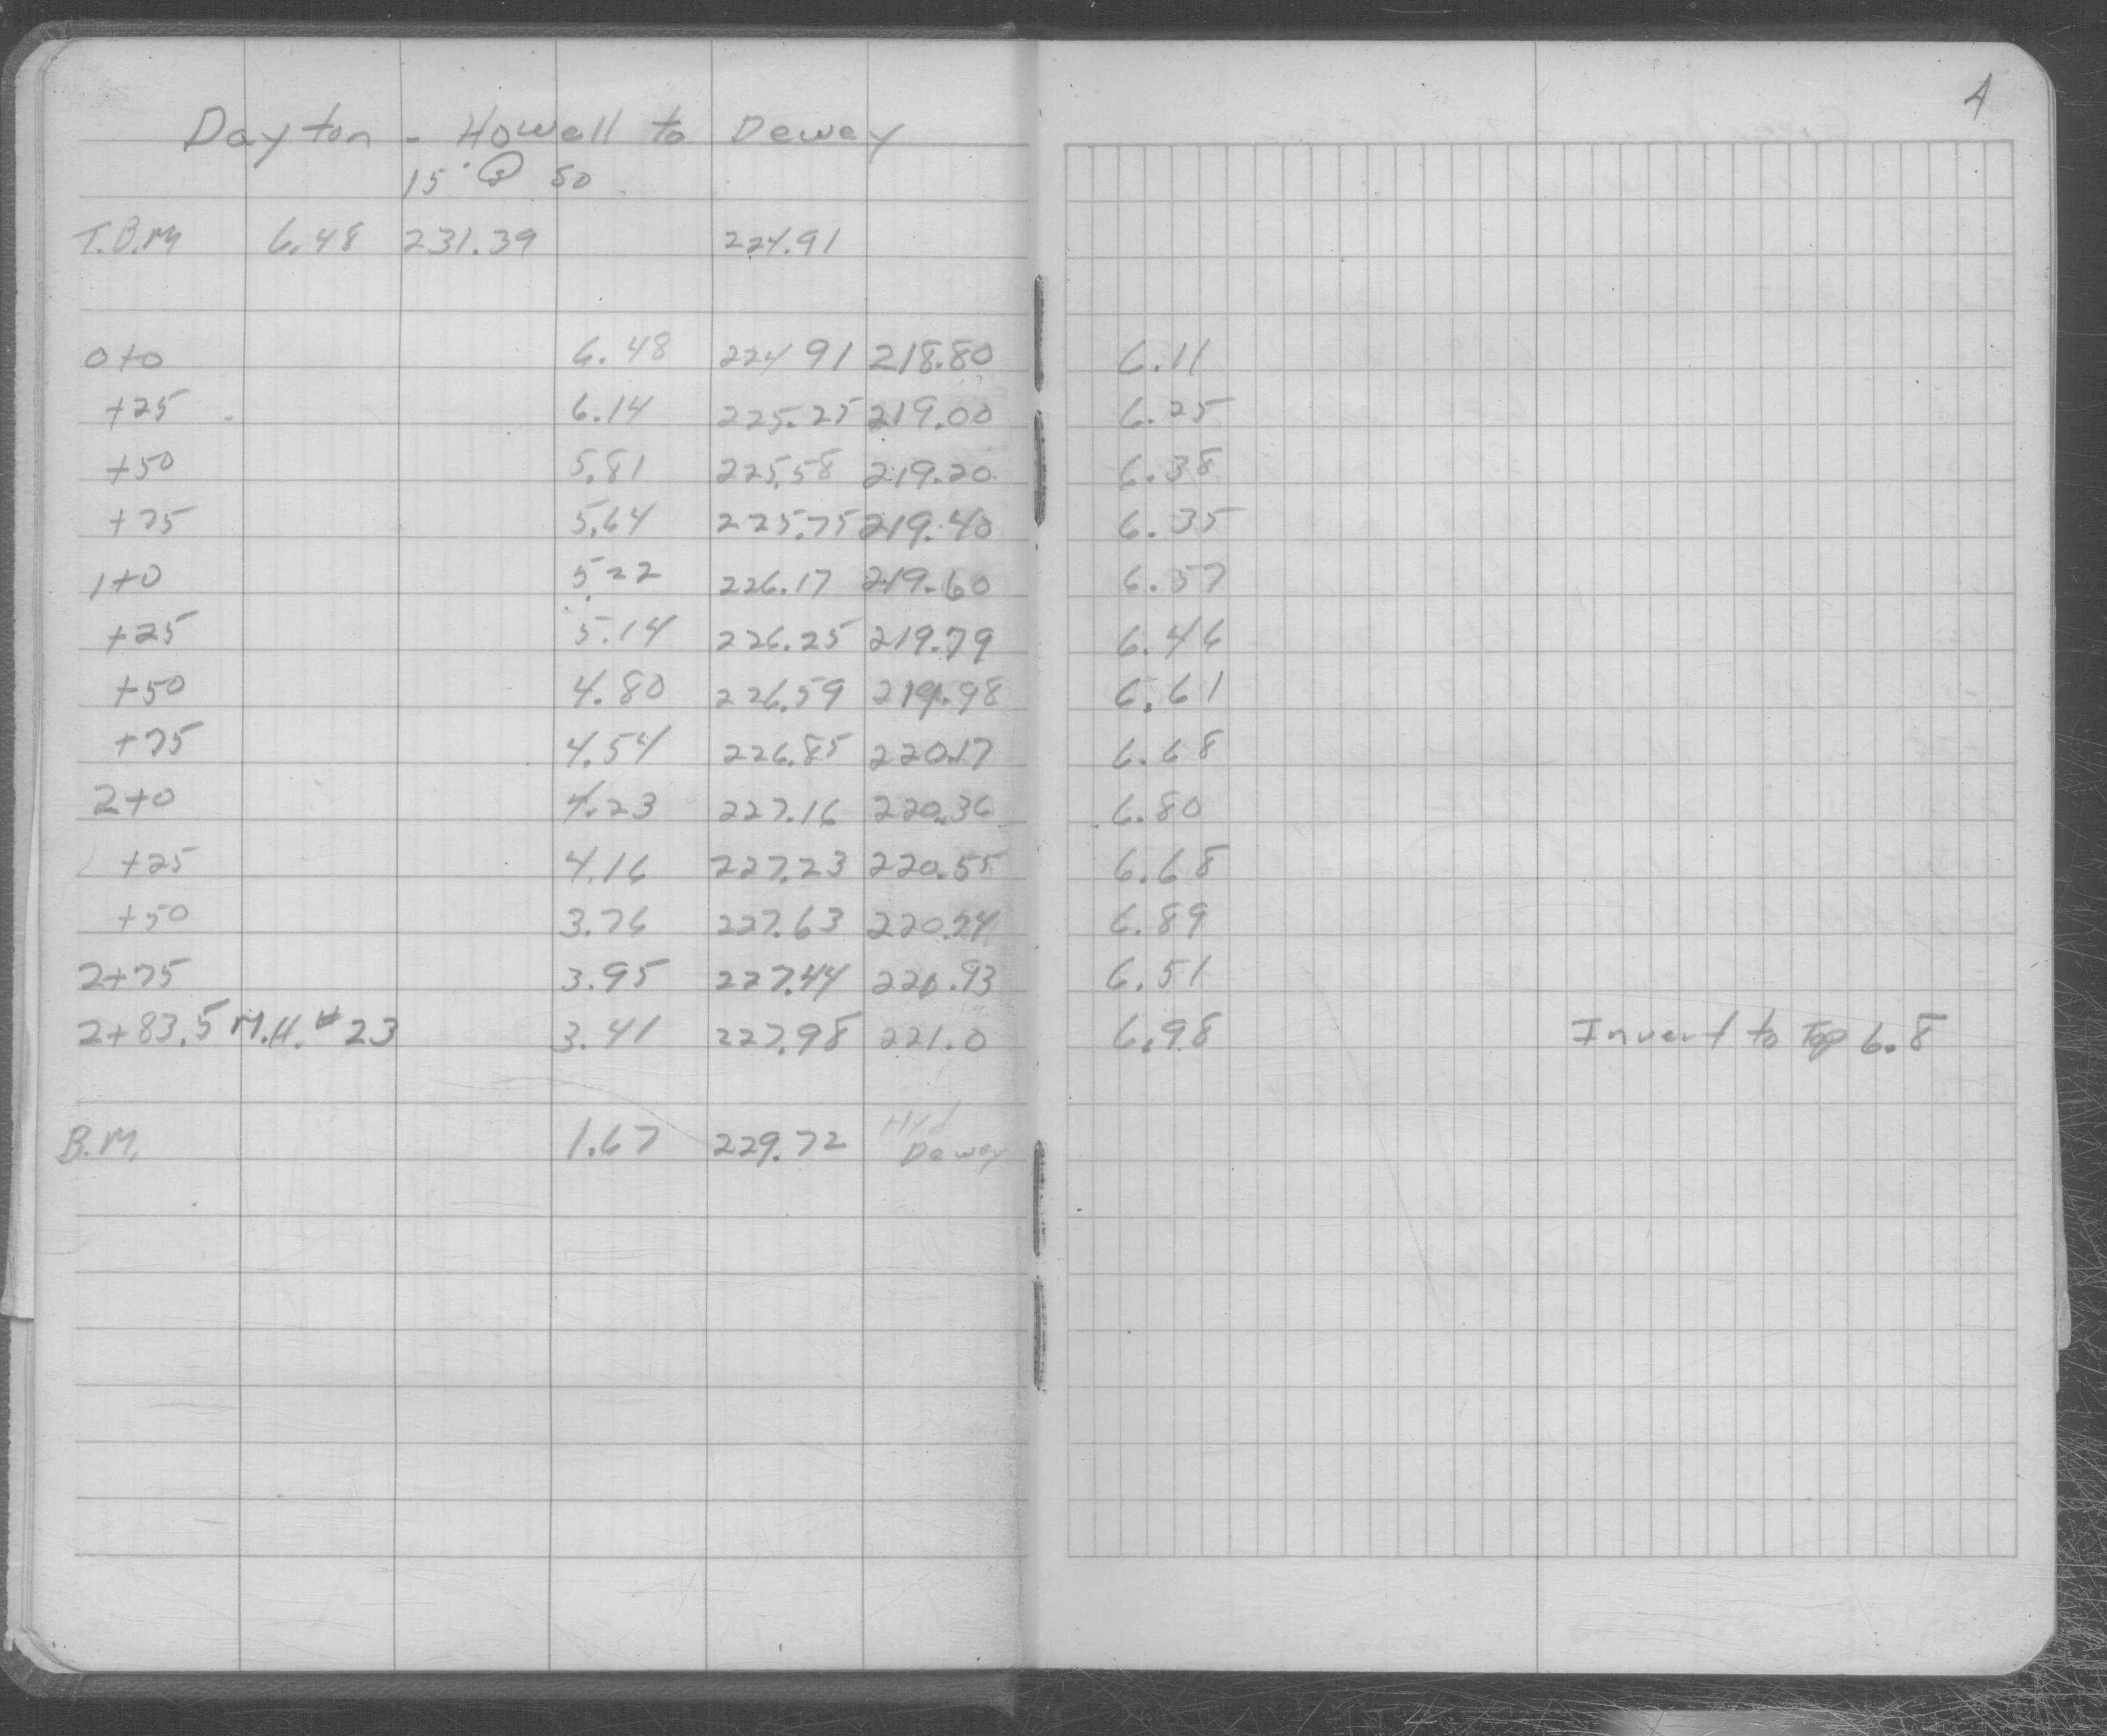 4
Dayton - Howell to Dewey
15" @ 80
T.B.M 6.48 231.39 224.91
0+0 6.48 224 91 218.80 6.11
+25 6.14 225.25 219.00 6.25
+50 5.81 225.58 219.20 6.38
+75 5.64 225.75 219.40 6.35
1+0 5.22 226.17 219.60 6.57
+25 5.14 226.25 219.79 6.46
+50 4.80 226.59 219.98 6.61
+75 4.54 226.85 220.17 6.68
2+0 4.23 227.16 220.36 6.80
+25 4.16 227.23 220.55 6.68
+50 3.76 227.63 220.74 6.89
2+75 3.95 227.44 220.93 6.51
2+83.5 M.H. #23 3.41 227.98 221.0 6.98 Invert to Top 6.8
B.M. 1.67 229.72 Hyd
Dewey